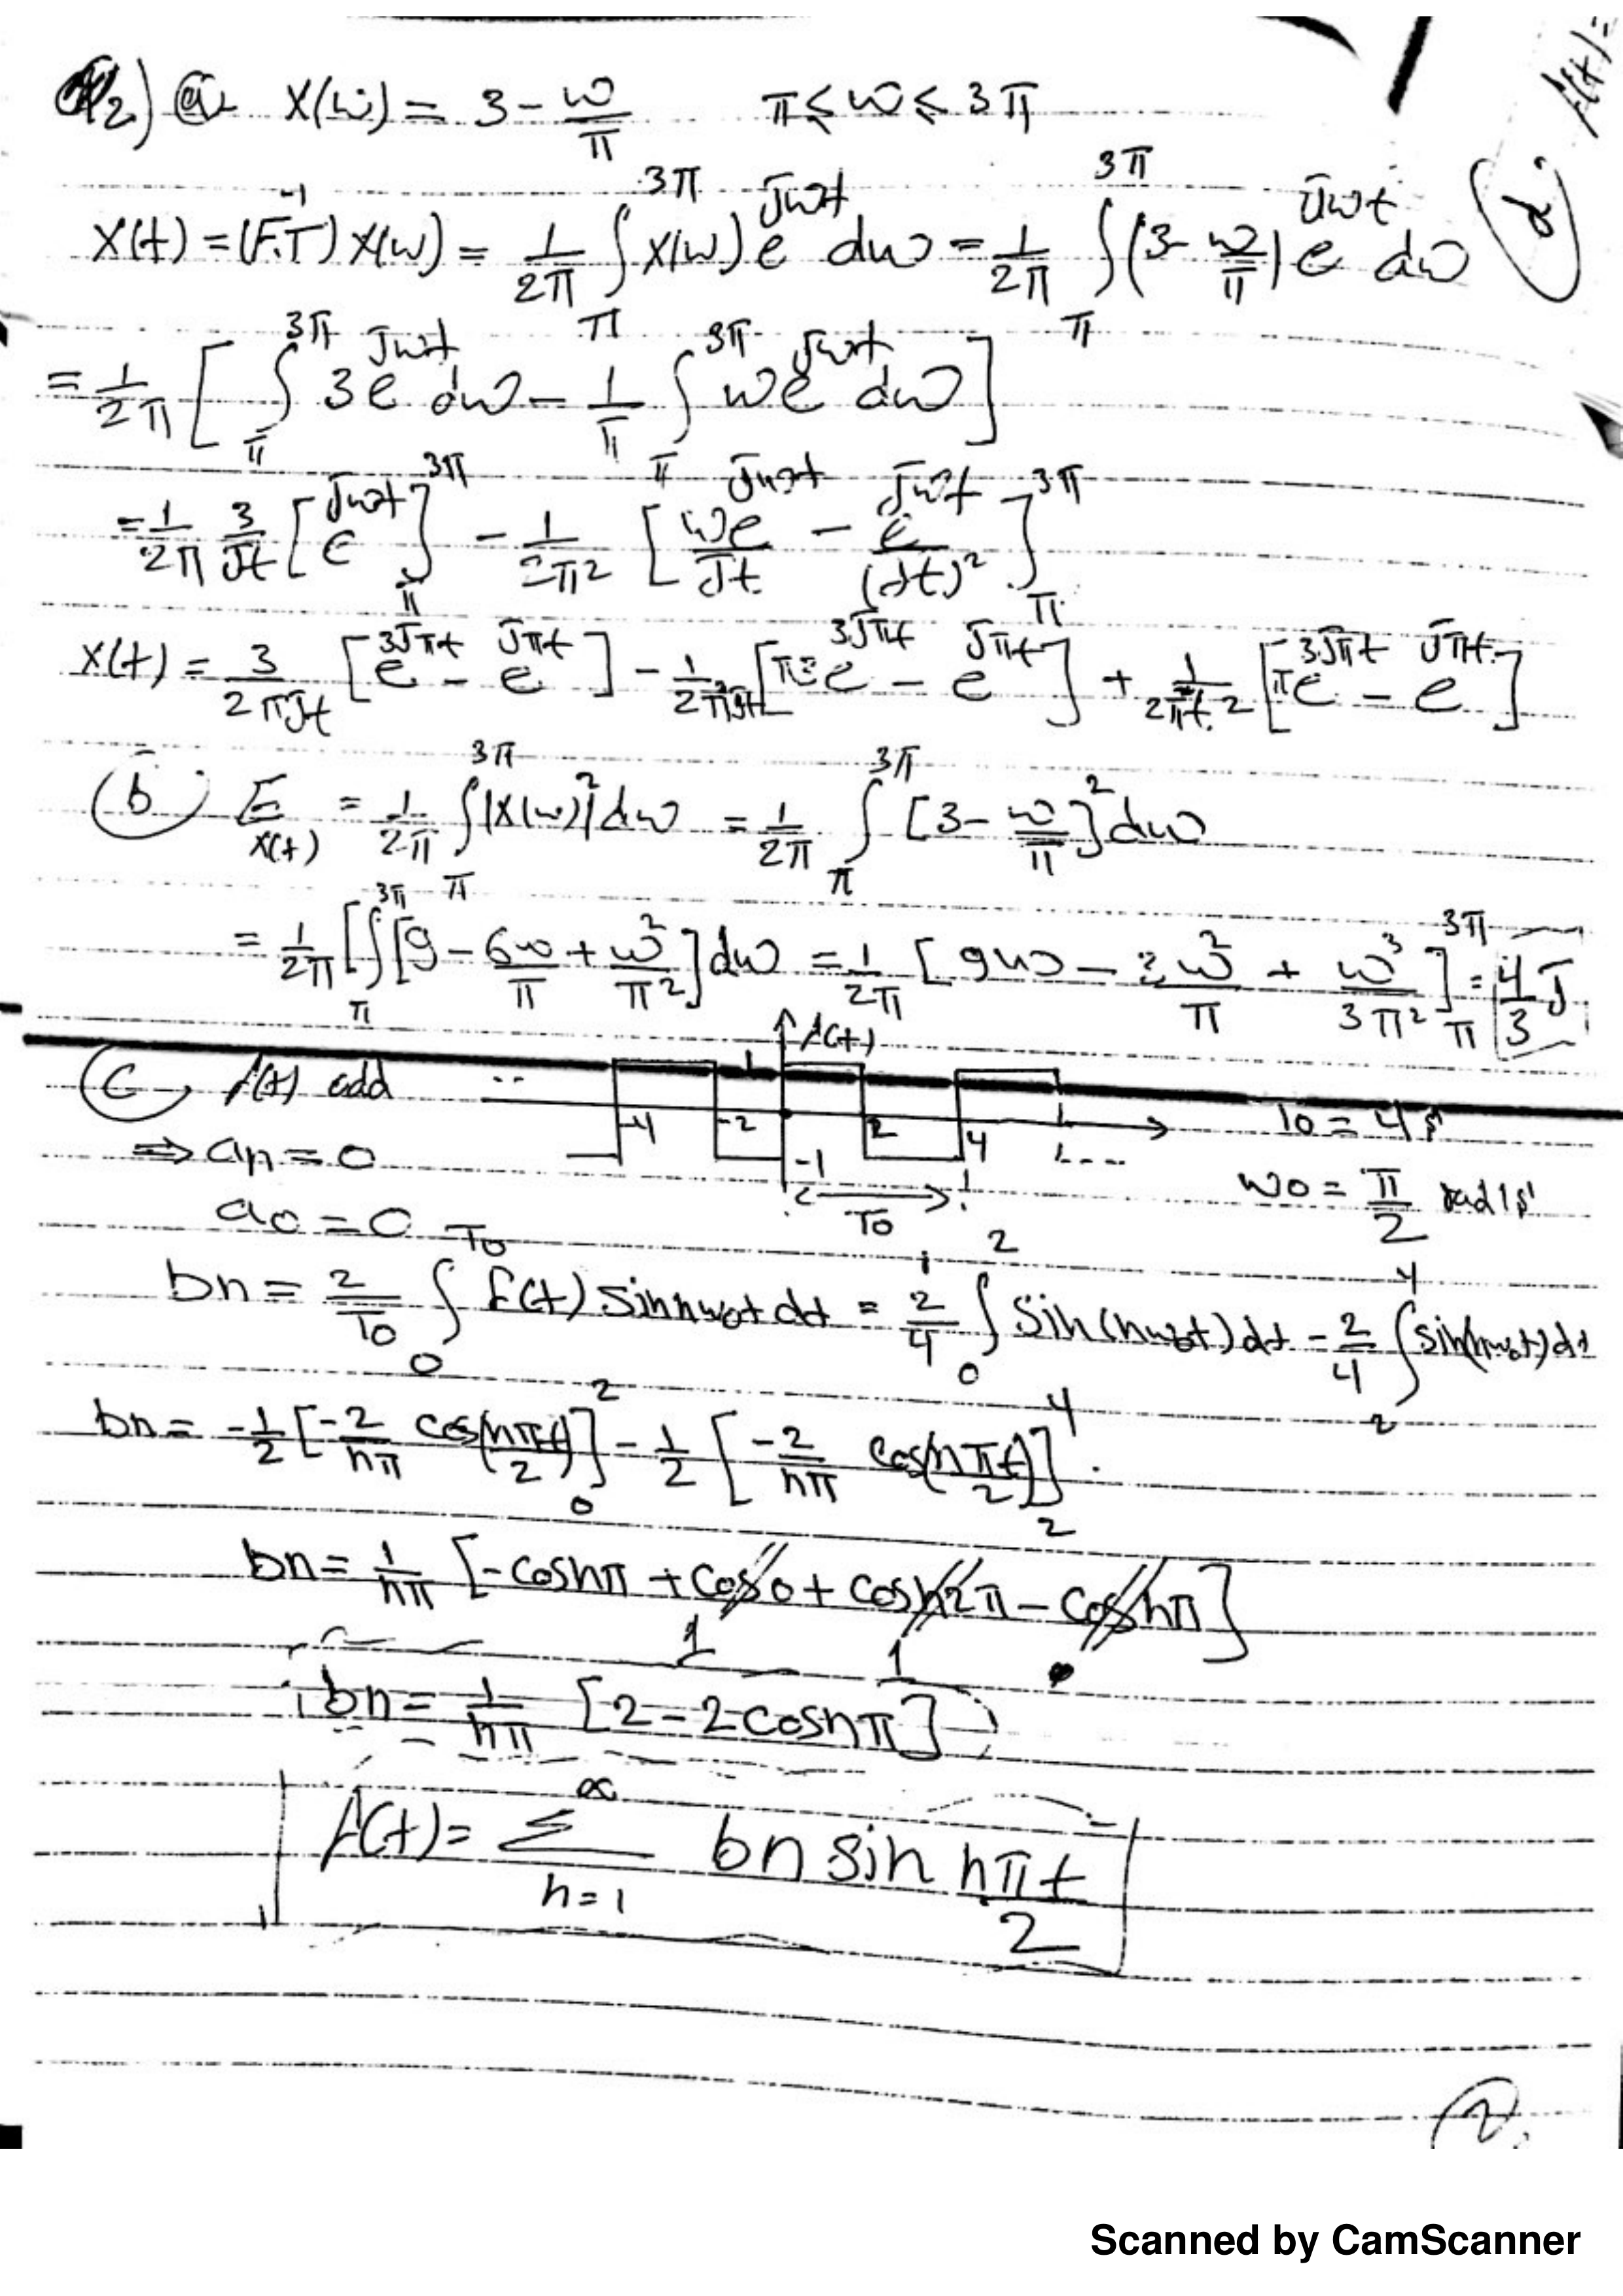 Q2) a X(ω) = 3 - ω/π   π ≤ ω ≤ 3π
x(t) = (F.T)^-1 X(ω) = 1/2π ∫_π^3π X(ω) e^jωt dω = 1/2π ∫_π^3π (3 - ω/π) e^jωt dω
= 1/2π [ ∫_π^3π 3 e^jωt dω - 1/π ∫_π^3π ω e^jωt dω ]
= 1/2π 3/jt [ e^jωt ]_π^3π - 1/2π² [ ωe^jωt/jt - e^jωt/(jt)² ]_π^3π
x(t) = 3/2πjt [ e^3jπt - e^jπt ] - 1/2π²jt [ π3e^3jπt - e^jπt ] + 1/2π²t² [ πe^3jπt - e^jπt ]
b E_x(t) = 1/2π ∫_π^3π |X(ω)|² dω = 1/2π ∫_π^3π [3 - ω/π]² dω
= 1/2π [ ∫_π^3π [9 - 6ω/π + ω²/π²] dω = 1/2π [ 9ω - 3ω²/π + ω³/3π² ]_π^3π = 4/3 J
c f(t) odd
f(t)
1
-4 -2 2 4
-1
T0
T0 = 4 s
⇒ an = 0
ω0 = π/2 rad/s
a0 = 0
bn = 2/T0 ∫_0^T0 f(t) sin nω0t dt = 2/4 ∫_0^2 sin(nω0t) dt - 2/4 ∫_2^4 sin(nω0t) dt
bn = -1/2 [ -2/nπ cos(nπt/2) ]_0^2 - 1/2 [ -2/nπ cos(nπt/2) ]_2^4
bn = 1/nπ [ -cosnπ + cos0 + cosn2π - cosnπ ]
1 1
bn = 1/nπ [2 - 2cosnπ]
f(t) = Σ_n=1^∞ bn sin nπt/2
Scanned by CamScanner